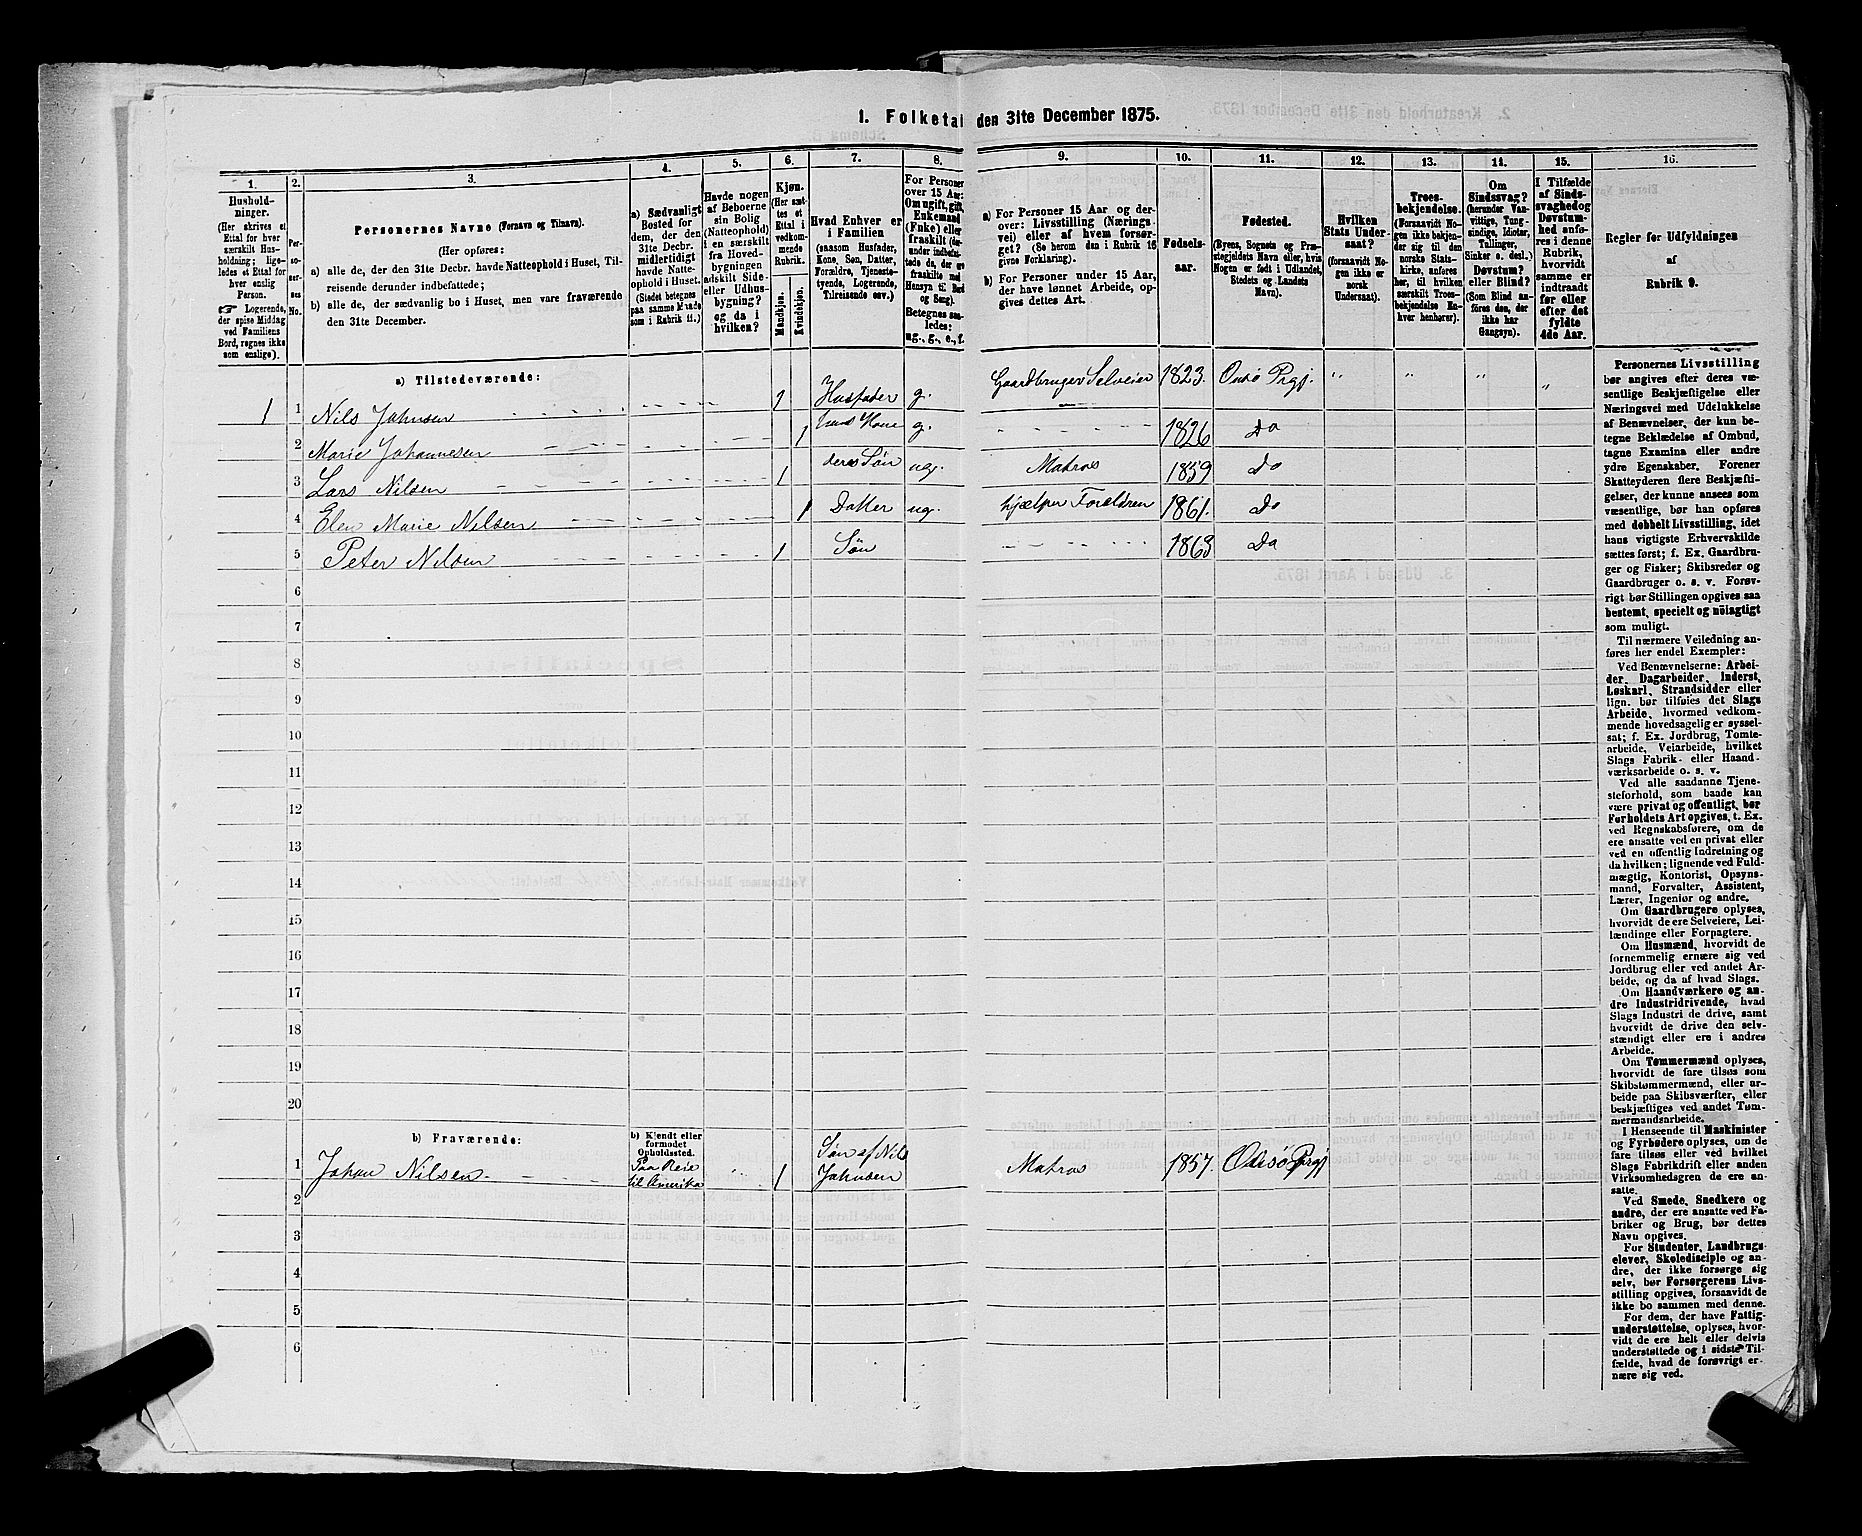 1. Folketal den 31te December 1875.
1.
Husholdninger.
(Her skrives et Ettal for hver særskilt Husholdning; ligeledes et Ettal for hver enslig Person.
☞ Logerende, der spise Middag ved Familiens Bord, regnes ikke som enslige).
2.
Personernes No.
3.
Personernes Navne (Fornavn og Tilnavn).
(Her opføres:
a) alle de, der den 31te Decbr. havde Natteophold i Huset, Tilreisende derunder indbefattede;
b) alle de, der sædvanlig bo i Huset, men vare fraværende den 31te December.
4.
a) Sædvanligt Bosted for dem, der den 31te Decbr. midlertidigt havde Natteophold i Huset.
(Stedet betegnes paa samme Maade som i Rubrik 11.)
5.
Havde nogen af Beboerne sin Bolig (Natteophold) i en særskilt fra Hovedbygningen adskilt Side- eller Udhusbygning? og da i hvilken?
6.
Kjøn.
(Her sættes et Ettal i vedkommende Rubrik.
Mandkjøn.
Kvindekjøn.
7.
Hvad Enhver er i Familien
(saasom Husfader, Kone, Søn, Datter, Forældre, Tjenestetyende, Logerende, Tilreisende osv.)
8.
For Personer over 15 Aar: Om ugift, gift, Enkemand (Enke) eller fraskilt (derunder indbefattede da, der ere fraskilte med Hensyn til Bord og Seng).
Betegnes saaledes:
ug., g., e., f.
9.
a) For Personer 15 Aar og derover: Livsstilling (Næringsvei) eller af hvem forsørget? (Se herom den i Rubrik 16 givne Forklaring).
b) For Personer under 15 Aar, der have lønnet Arbeide, opgives dettes Art.
10.
Fødselsaar.
11.
Fødested.
(Byens, Sognets og Præstegjeldets Navn eller, hvis Nogen er født i Udlandet, Stedets og Landets Navn).
12.
Hvilken Stats Undersaat?
(forsaavidt Nogen ikke er norsk Undersaat).
13.
Troesbekjendelse.
(Forsaavidt Nogen ikke bekjender sig til den norske Statskirke, anføres her, til hvilken særskilt Troesbekjendelse Enhver henhører).
14.
Om Sindssvag?
(herunder Vanvittige, Tungsindige, Idioter, Tullinger, Sinker o. desl.)
Døvstum? eller Blind?
(Som Blind anføres den, der ikke har Gangsyn).
15.
I Tilfælde af Sindssvaghed og Døvstumhed anføres i denne Rubrik, hvorvidt samme er indtraadt før eller efter det fyldte 4de Aar.
16.
Regler for Udfyldningen af Rubrik 9.
a) Tilstedeværende:
1 1 Nils Johnsen 1 Husfader g. Gaardbruger Selveier 1823. Onsö Prgj. " " " "
2 Marie Johannesen 1 hans Kone g. 1826 Do
3 Lars Nilsen 1 deres Søn ug. Matros 1859 Do
4 Elen Marie Nilsen 1 Datter ug. hjælper Forældren 1861. Do
5 Peter Nilsen 1 Søn 1863 Do
6
7
8
9
10
11
12
13
14
15
16
17
18
19
20
b) Fraværende:
b) Kjendt eller formodet Opholdssted.
1 Johan Nilsen Paa Reise til Amerika 1 Søn af Nils Johnsen Matros 1857. Onsö Prgj
2
3
4
5
6
Personernes Livsstilling
bør angives efter deres væ-
sentlige Beskjæftigelse eller
Næringsvei med Udelukkelse
af Benævnelser, der kun be-
tegne Beklædelse af Ombud,
tagne Examina eller andre
ydre Egenskaber. Forener
Skatteyderen flere Beskjæfti-
gelser, der kunne ansees som
væsentlige, bør han opføres
med dobbelt Livsstilling, idet
hans vigtigste Erhvervskilde
sættes først; f. Ex. Gaardbru-
ger og Fisker; Skibsreder og
Gaardbruger o. s. v. Forøv-
rigt bør Stillingen opgives saa
bestemt, specielt og nöiagtigt
som muligt.
Til nærmere Veiledning an-
føres her endel Exempler:
Ved Benævnelserne: Arbei-
der, Dagarbeider, Inderst,
Løskarl, Strandsidder eller
lign. bør tilføies det Slags
Arbeide, hvormed vedkom-
mende hovedsagelig er syssel-
sat; f. Ex. Jordbrug, Tomte-
arbeide, Veiarbeide, hvilket
Slags Fabrik- eller Haand-
værksarbeide o. s. v.
Ved alle saadanne Tjene-
steforhold, som baade kan
være privat og offentligt, bør
Forholdets Art opgives, t. Ex.
ved Regnskabsførere, om de
ere ansatte ved en privat eller
ved en offentlig Indretning og
da hvilken; lignende ved Fuld-
mægtig, Kontorist, Opsyns-
mand, Forvalter, Assistent,
Lærer, Ingeniør og andre.
Om Gaardbrugere oplyses,
hvorvidt de ere Selveiere, Lei-
lændinge eller Forpagtere.
Om Husmænd, hvorvidt de
fornemmelig ernære sig ved
Jordbrug eller ved andet Ar-
beide, og da af hvad Slags.
Om Haandværkere og an-
dre Industridrivende, hvad
Slags Industri de drive, samt
hvorvidt de drive den selv-
stændigt eller ere i andres
Arbeide.
Om Tømmermænd oplyses,
hvorvidt de fare tilsøs som
Skibstømmermænd, eller ar-
beide paa Skibsværfter, eller
beskjæftiges ved andet Tøm-
mermandsarbeide.
I Henseende til Maskinister
og Fyrbødere oplyses, om de
fare tilsøs eller ved hvilket
Slags Fabrikdrift eller anden
Virksomhedsgren de ere an-
satte.
Ved Smede, Snedkere og
andre, der ere ansatte ved Fa-
briker og Brug, bør dettes
Navn opgives.
For Studenter, Landbrugs-
elever, Skoledisciple og an-
dre, der ikke forsørge sig
selv, bør Forsørgerens Livs-
stilling opgives, forsaavidt de
ikke bo sammen med denne.
For dem, der have Fattig-
understøttelse, oplyses, hvor-
vidt de ere helt eller delvis
understøttede og i sidste Til-
fælde, hvad de forøvrigt er-
nære sig ved.